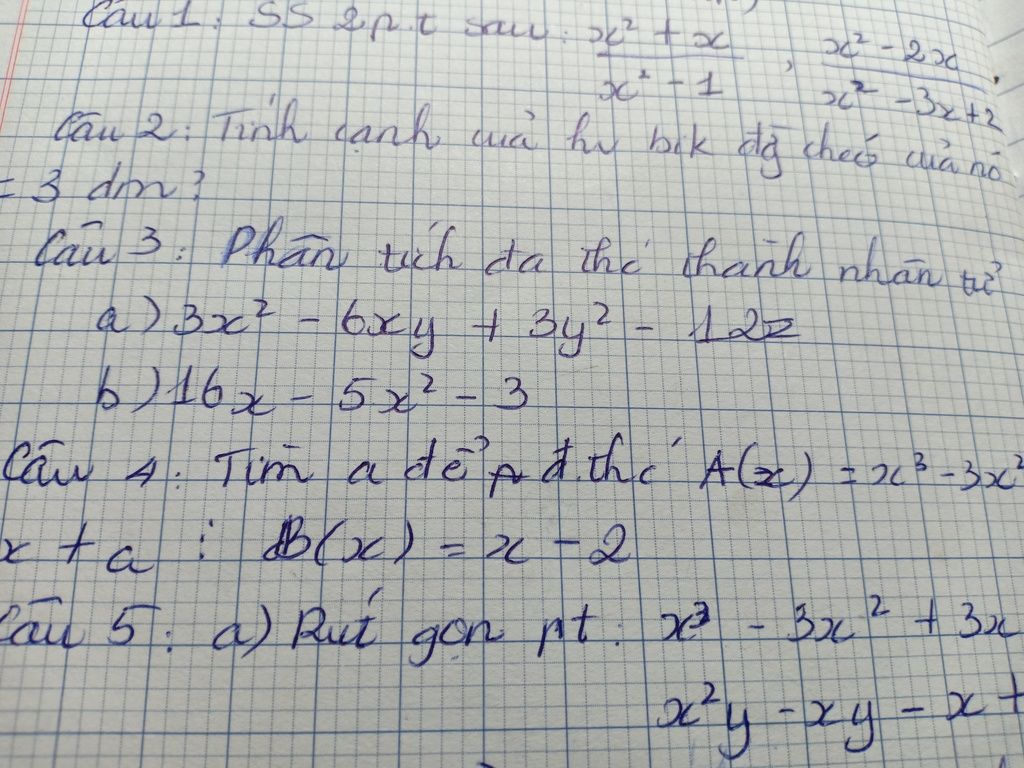 Câu 1: SS 2 p.t sau: x² + x / x² - 1 , x² - 2x / x² - 3x + 2
Câu 2: Tính cạnh cuả hv bik đg cheó cuả nó
= 3 dm?
Câu 3: Phân tích đa thć thành nhân tử
a) 3x² - 6xy + 3y² - 12z
b) 16x - 5x² - 3
Câu 4: Tìm a để đ.thć A(x) = x³ - 3x²
x + a ⋮ B(x) = x - 2
Câu 5: a) Rút gọn pt: x³ - 3x² + 3x
x²y - xy - x +